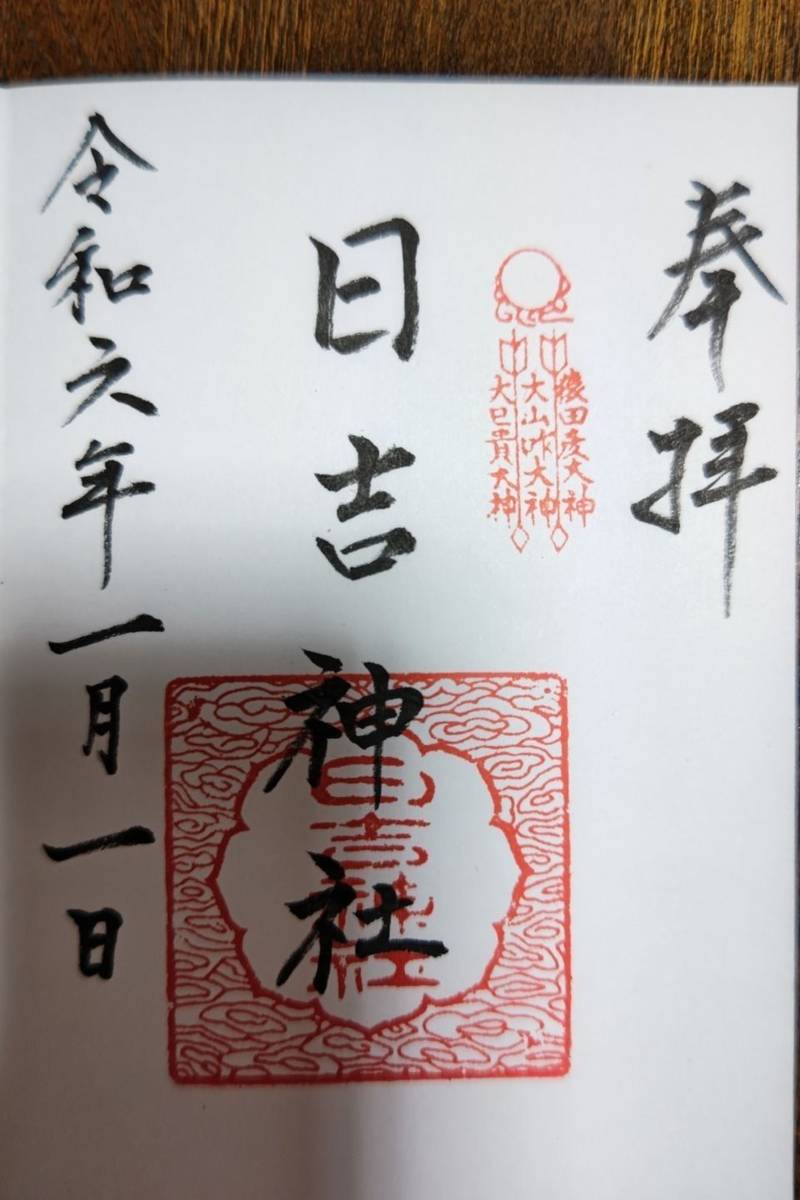 奉拝
猿田彦大神
大山咋大神
大己貴大神
日吉神社
日吉神社
令和六年一月一日